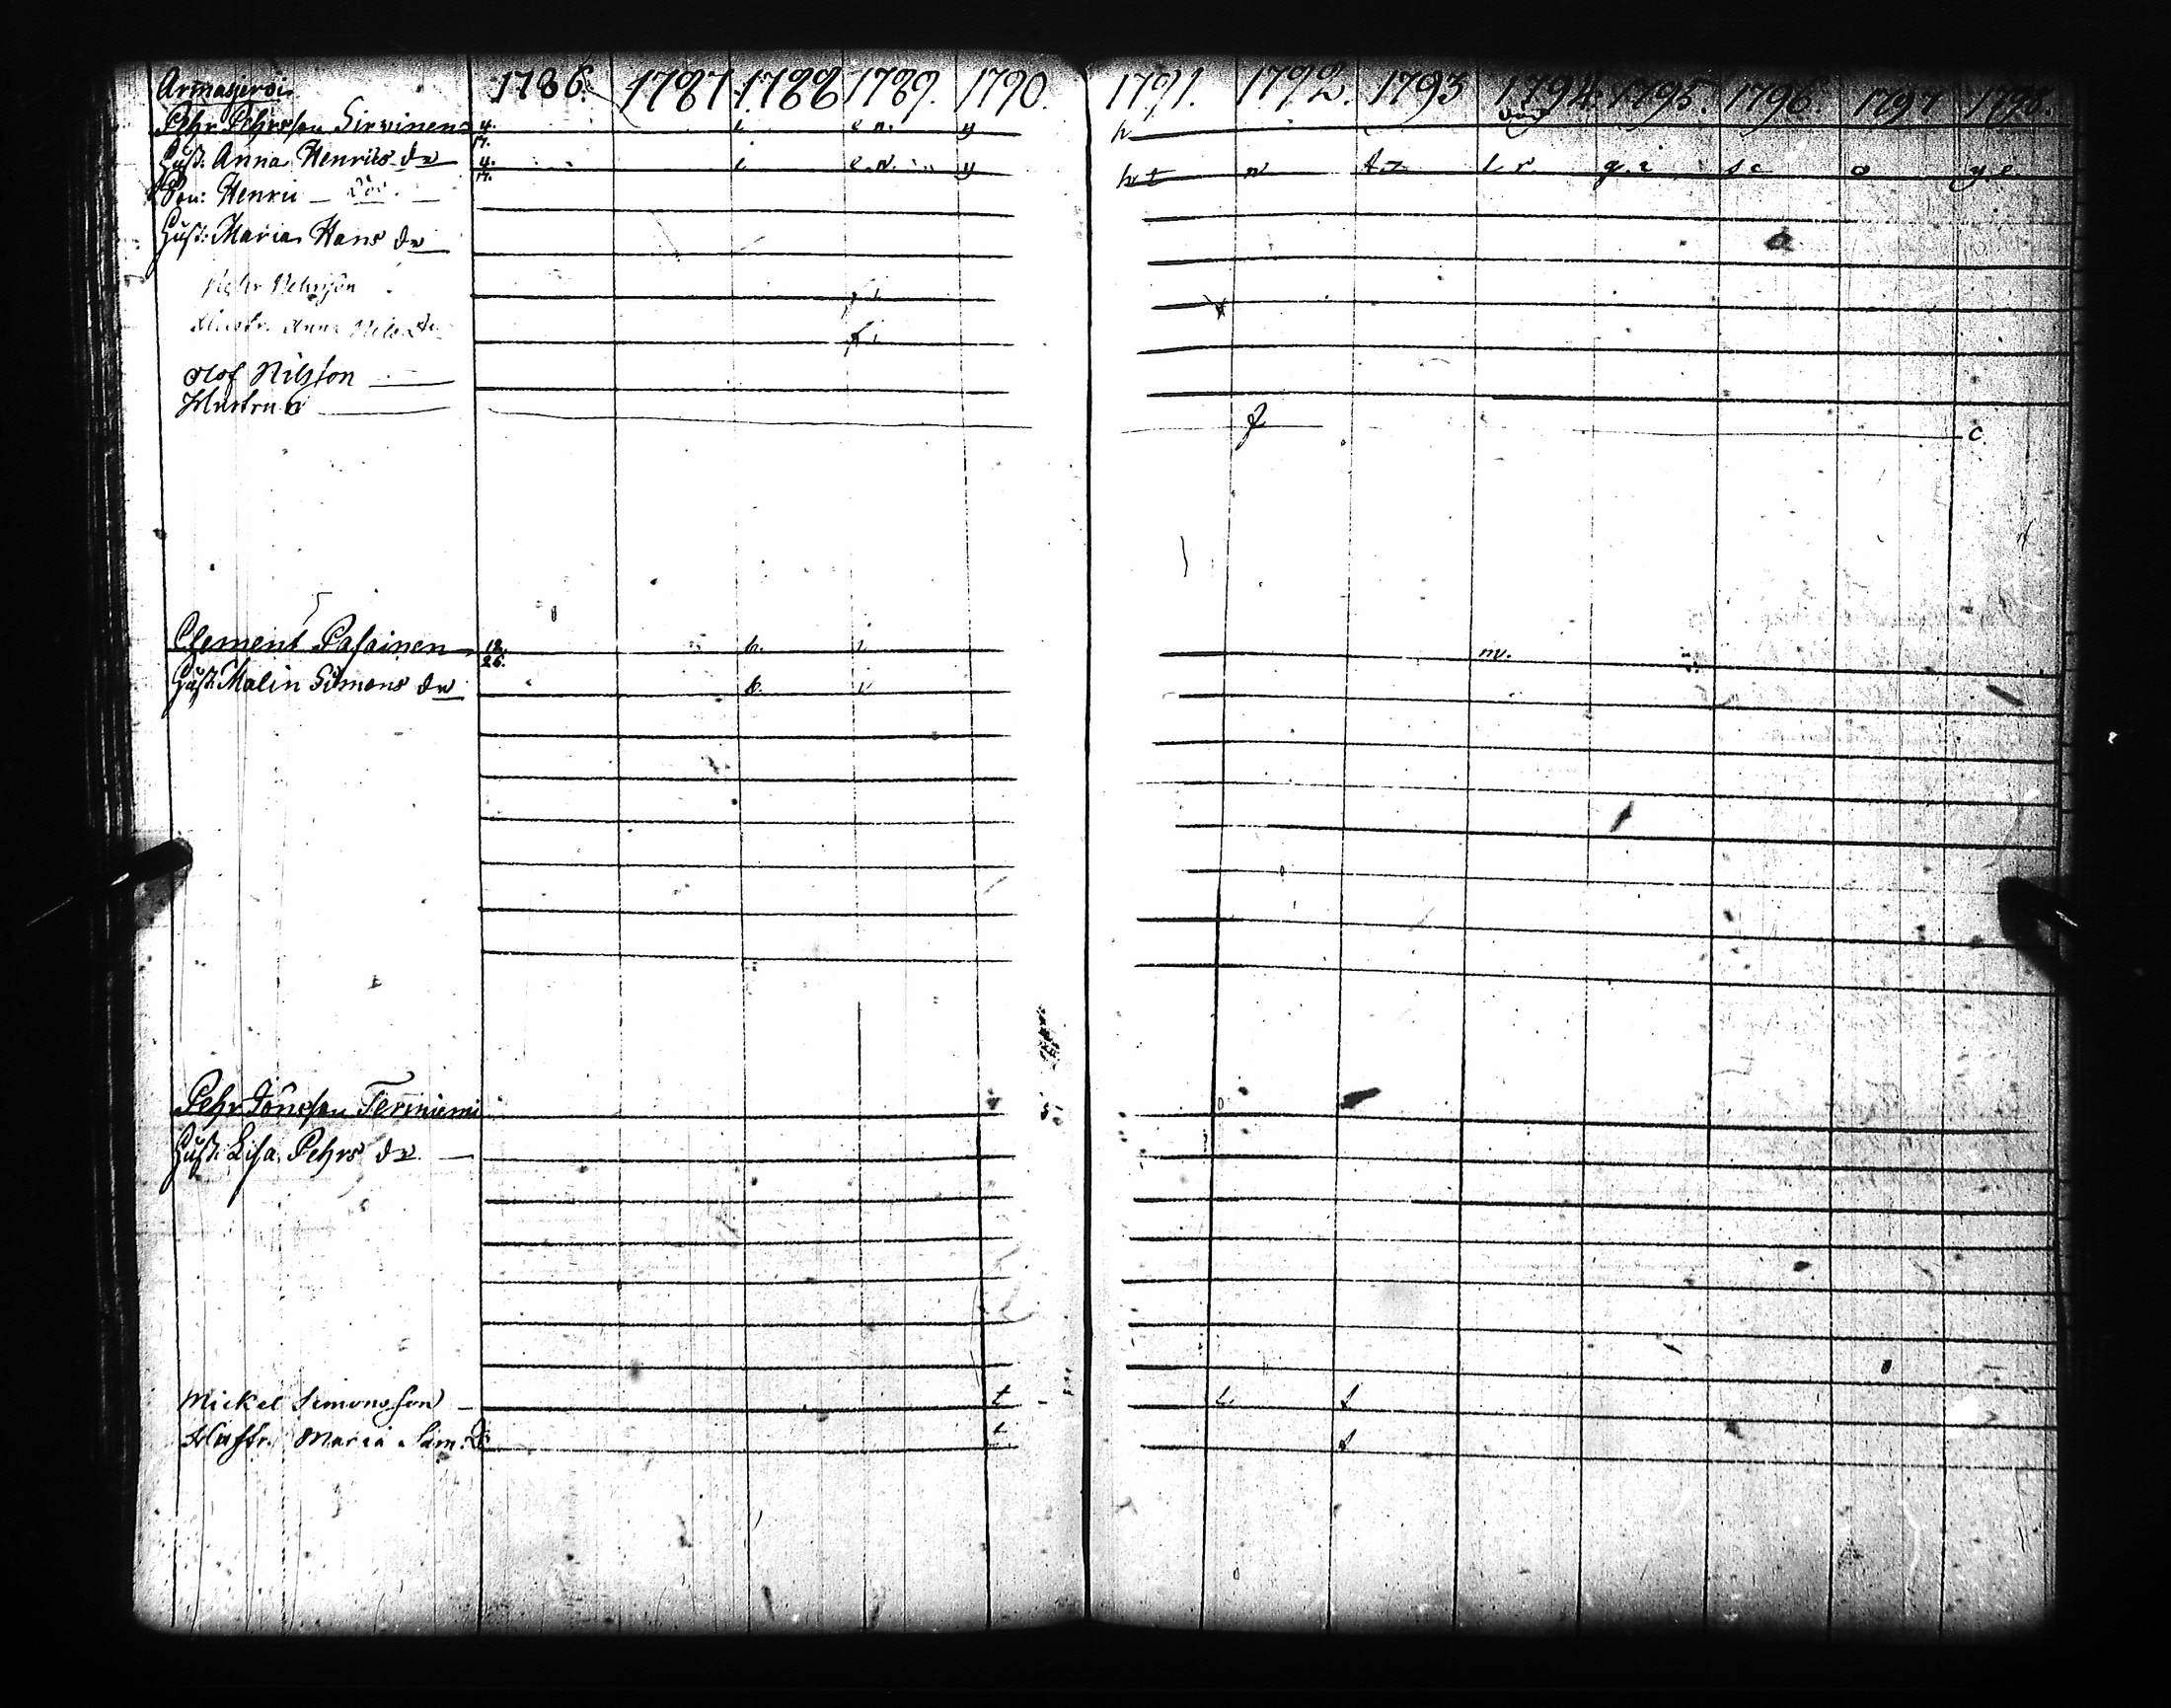 Armasjerwi 1786. 1787. 1788 1789. 1790. 1791. 1792. 1793 1794. 1795. 1796. 1797 1798.
Pehr Pehrsson Sirwinen 4. i e n. y h död
17.
Hust: Anna Henrics dr 4. i e. n. y h t n t z l r. g. i s c o y. e.
17.
Son: Henric
Hust: Maria Hans dr
Pehr Pehrsson f i
Hustr. Anna Nils dr f i
Olof Nilsson
Hustru f c
Clement Pasainen 18. b. i m.
26.
Hust: Malin Simons dr b. i
Pehr Jönsson Termiemi
Hust: Lisa Pehrs dr
Mickel Simonsson t L s
Hustr. Maria Sim: d: t s